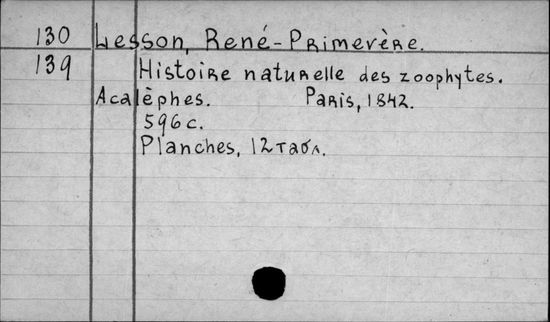 130 Lesson, René-Primevère.
139 Histoire naturelle des zoophytes.
Acalèphes. Paris, 1842.
596 c.
Planches, 12 табл.